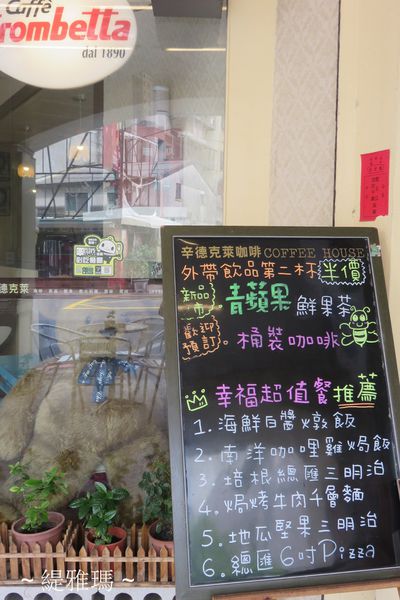 Caffè
Trombetta
dai 1890
辛德克萊咖啡 COFFEE HOUSE
外帶飲品第二杯半價
新品
青蘋果鮮果茶
歡迎
預訂
桶裝咖啡
幸福超值餐推薦
1. 海鮮白醬燉飯
2. 南洋咖哩雞焗飯
3. 培根總匯三明治
4. 焗烤牛肉千層麵
5. 地瓜堅果三明治
6. 總匯6吋Pizza
德克萊咖啡
~ 緹雅瑪 ~